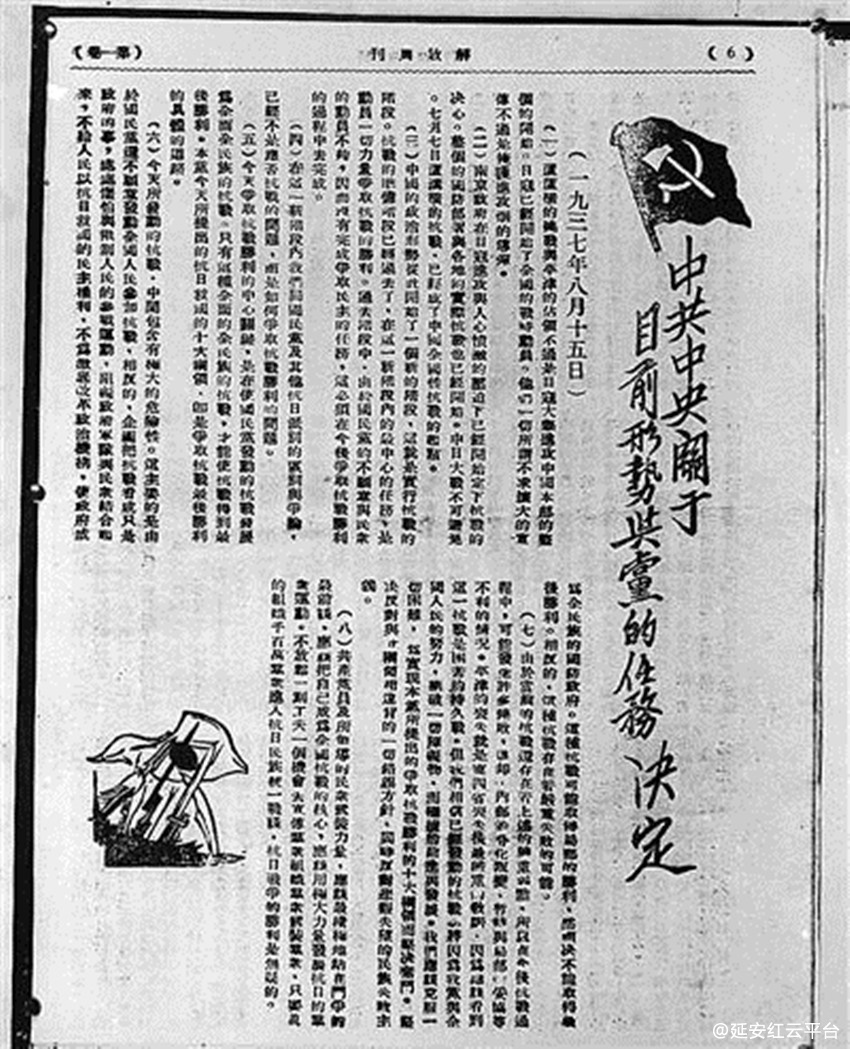 （6）
解放周刊
（第一卷）
中共中央關于
目前形勢與黨的任務 決定
（一九三七年八月十五日）
（一）蘆溝橋的挑戰與平津的佔領不過是日寇大舉進攻中國本部的整
個的開始。日寇已經開始了全國的戰時動員。他們一切所謂不求擴大的宣
傳不過是掩護進攻的烟幕彈。
（二）南京政府在日寇進攻與人心憤激的壓迫下已經開始定下抗戰的
决心。整個的國防部署與各地的實際抗戰也已經開始。中日大戰不可避免
。七月七日蘆溝橋的抗戰，已經成了中國全國性抗戰的起點。
（三）中國的政治形勢從此開始了一個新的階段，這就是實行抗戰的
階段。抗戰的準備階段已經過去了，在這一新階段內的最中心的任務，是
動員一切力量爭取抗戰的勝利。過去階段中，由於國民黨的不願意與民衆
的動員不夠，因而沒有完成爭取民主的任務，這必須在今後爭取抗戰勝利
的過程中去完成。
（四）在這一新階段內我們同國民黨及其他抗日派別的區別與爭論，
已經不是應否抗戰的問題，而是如何爭取抗戰勝利的問題。
（五）今天爭取抗戰勝利的中心關鍵，是在使國民黨發動的抗戰發展
爲全面全民族的抗戰。只有這種全面的全民族的抗戰，才能使抗戰得到最
後勝利。本黨今天所提出的抗日救國的十大綱領，即是爭取抗戰最後勝利
的具體的道路。
（六）今天所發動的抗戰，中間包含有極大的危險性。這主要的是由
於國民黨還不願意發動全國人民參加抗戰，相反的，企圖把抗戰看成只是
政府的事，處處懼怕與限制人民的參戰運動，阻礙政府軍隊與民衆結合起
來，不給人民以抗日救國的民主權利，不爲徹底改革政治機構，使政府成
爲全民族的國防政府。這種抗戰可能取得局部的勝利，然而决不能取得最
後勝利。相反的，這種抗戰存在着嚴重失敗的可能。
（七）由於當前的抗戰還存在着上述的嚴重弱點，所以在今後抗戰過
程中，可能發生許多挫敗，退却，內部的分化叛變，暫時與局部的妥協等
不利的情況。平津的喪失就是東四省喪失後最嚴重的教訓，因爲應該看到
這一抗戰是困苦的持久戰。但我們相信已經發動的抗戰必將因爲我黨與全
國人民的努力，衝破一切障礙物，而繼續的前進與發展。我們應該克服一
切困難，爲實現本黨所提出的爭取抗戰勝利的十大綱領而堅决奮鬥。堅
决反對與此綱領相違背的一切錯誤方針，同時反對悲觀失望的民族失敗主
義。
（八）共產黨員及所領導的民衆武裝力量，應該最積極地站在鬥爭的
最前綫，應該把自己成爲全國抗戰的核心，應該用極大力量發展抗日的羣
衆運動。不放鬆一刻工夫一個機會去宣傳羣衆組織羣衆武裝羣衆，只要真
的組織千百萬羣衆進入抗日民族統一戰綫，抗日戰爭的勝利是無疑的。
@延安红云平台